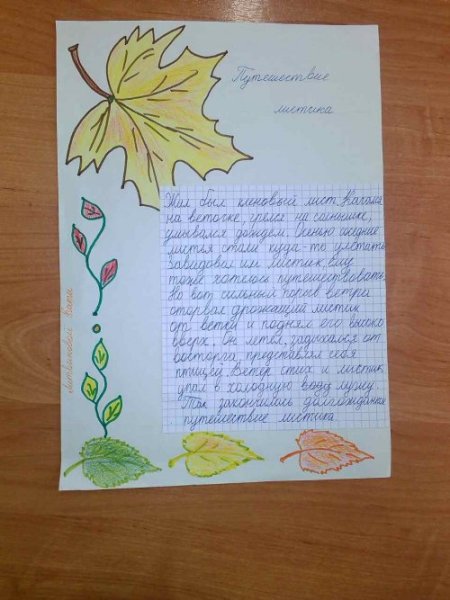 Путешествие
листика
Жил был кленовый лист. Качался
на веточке, грелся на солнышке,
умывался дождем. Осенью соседние
листья стали куда-то улетать.
Завидовал им листик. Ему
тоже хотелось путешествовать.
Но вот сильный порыв ветра
оторвал дрожащий листик
от ветки и поднял его высоко
вверх. Он летел, задыхался от
восторга, представлял себя
птицей. Ветер стих и листик
упал в холодную воду лужу.
Так закончилось долгожданное
путешествие листика.
Литвиновой Вали